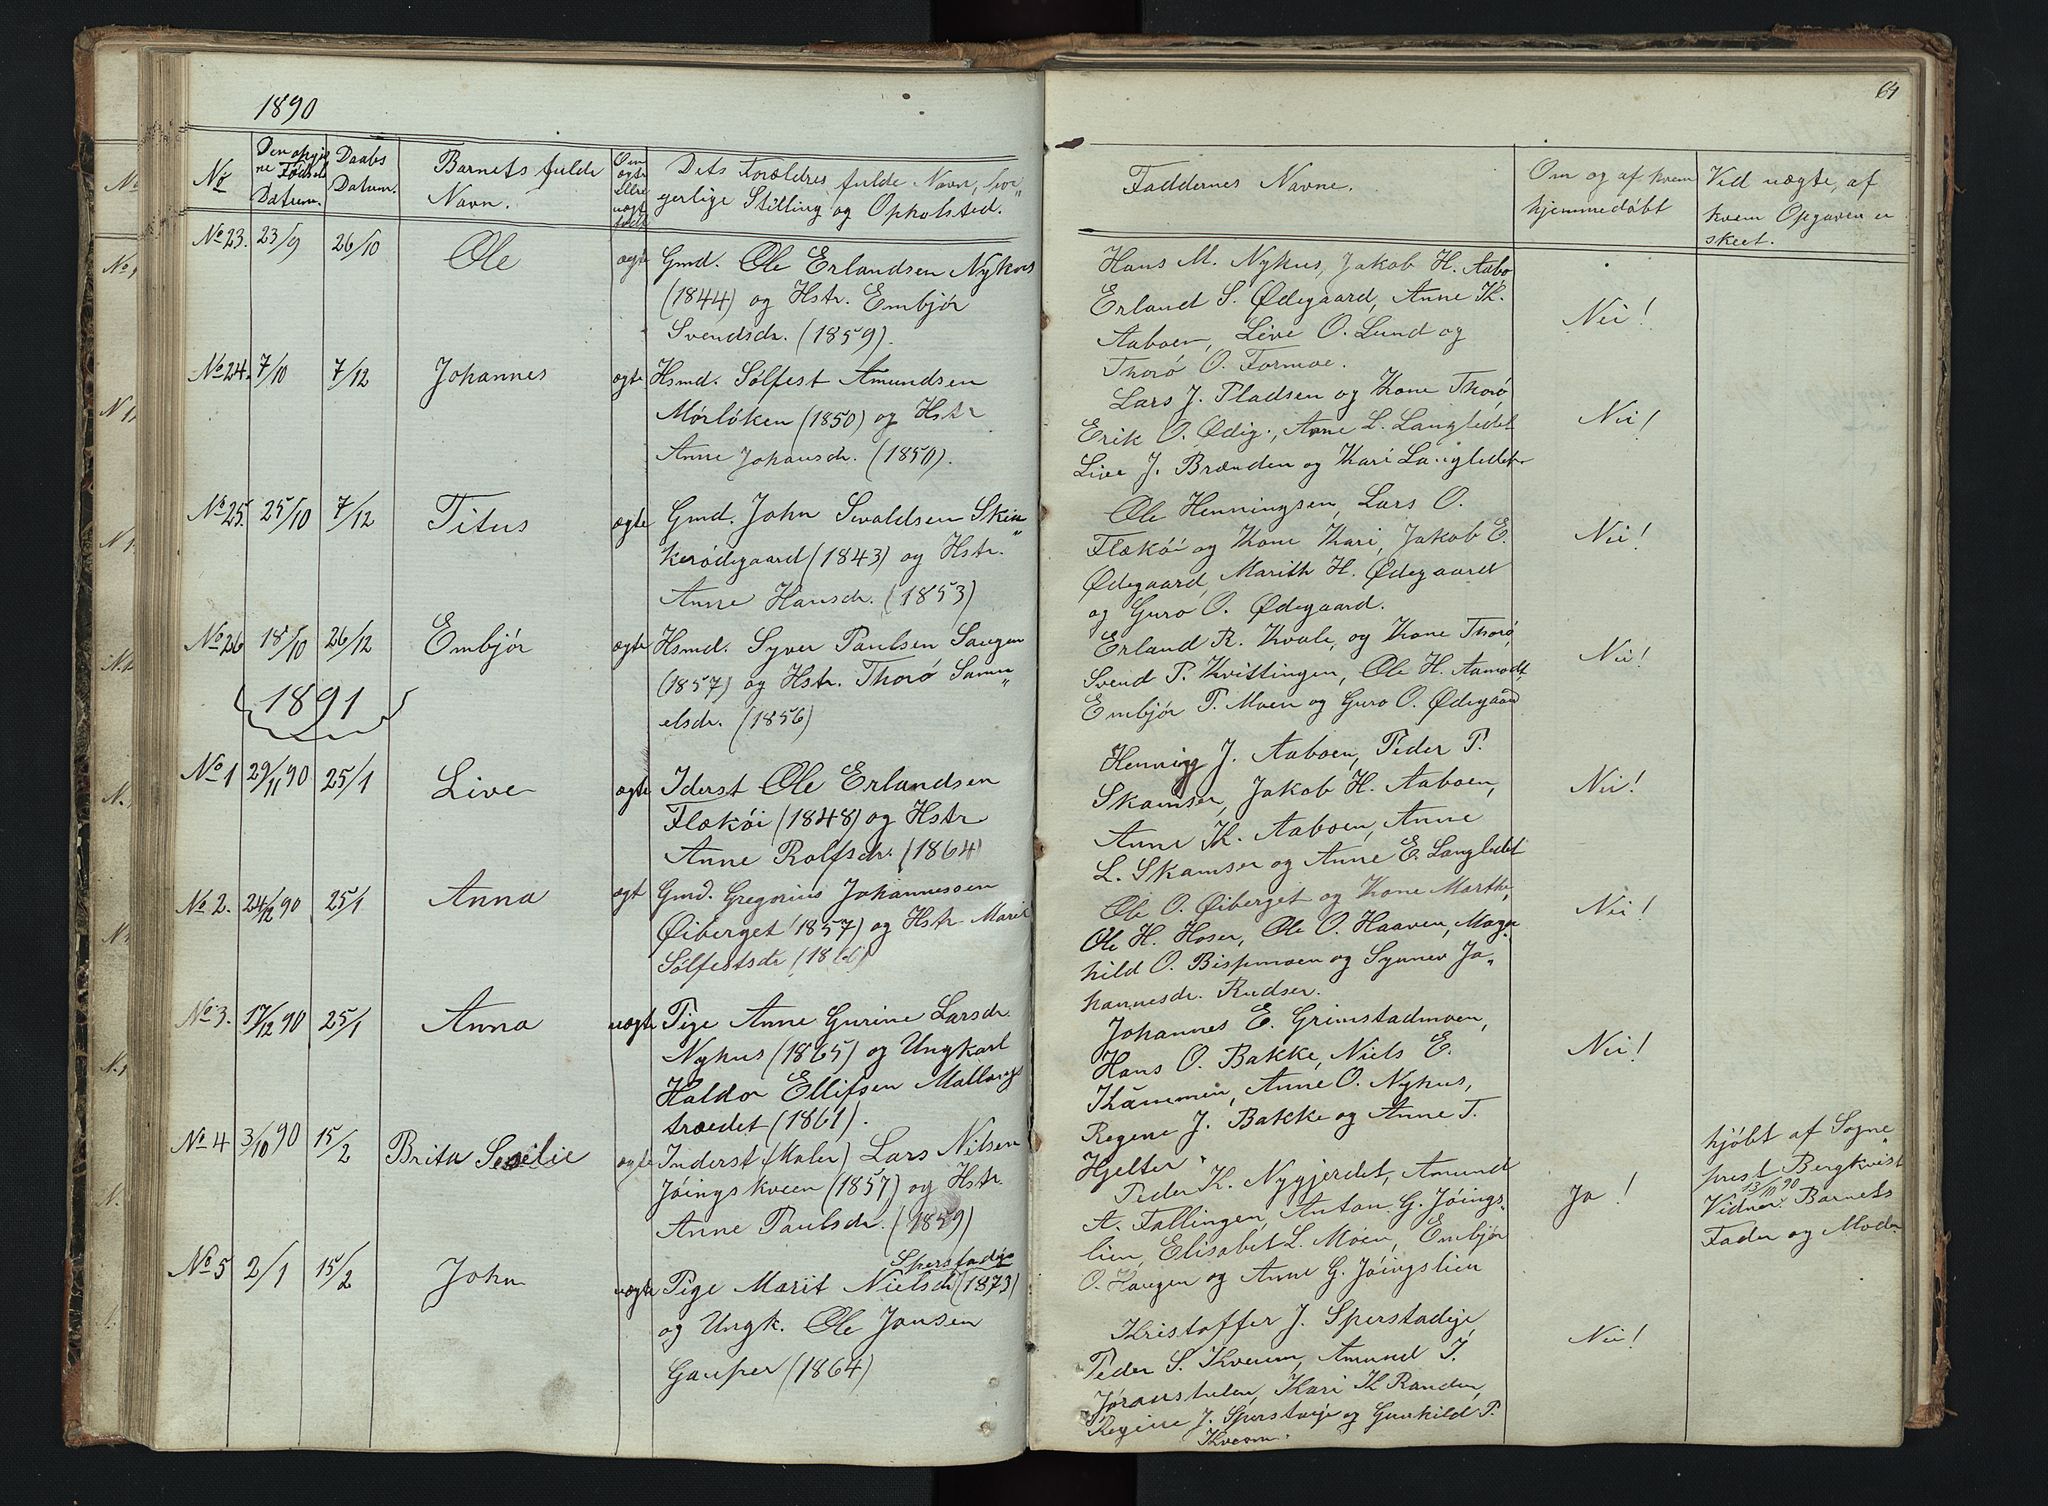 1890
No
Den opgivne Fødsels Datum.
Daabs Datum.
Barnets fulde Navn.
Om ægte eller uægtefødt
Dets Forældres fulde Navn, bor„
gerlige Stilling og Opholsted.
No 23. 23/9 26/10 Ole ægte Gmd. Ole Erlandsen Nykus
(1844) og Hstr. Embjør
Svendsdr. (1859).
No 24. 7/10 7/12 Johannes ægte Hsmd. Sølfest Amundsen
Mørløken (1850) og Hstr
Anne Johansdr. (1850).
No 25. 25/10 7/12 Titus ægte Gmd. John Sivaldsen Skin„
kerødegaard (1843) og Hstr.
Anne Hansdr. (1853)
No 26 18/10 26/12 Embjør ægte Hsmd. Syver Paulsen Haugen
(1857) og Hstr. Thorø Samu„
elsdr. (1856)
1891
No 1 29/11 90 25/1 Live ægte Iderst Ole Erlandsen
Flækøi (1848) og Hstr
Anne Rolfsdr. (1864)
No 2. 24/12 90 25/1 Anna ægt Gmd. Gregorius Johannessen
Øiberget (1857) og Hstr Marit
Sølfestsdr
No 3. 17/12 90 25/1 Anna uægte Pige Anne Gurine Larsdr
Nykus (1865) og Ungkarl
Haldor Ellifsen Mallangs
trædet (1861).
No 4 3/10 90 15/2 Brita Sesilie ægte Inderst (Maler) Lars Nilsen
Jøingskveen (1857) og Hstr.
Anne Paulsdr. (1859)
No 5 2/1 15/2 John uægte Pige Marit Nielsdr Sperstadøie (1873)
og Ungk. Ole Jansen
Gauper (1864)
64
Faddernes Navne.
Om og af hvem
hjemmedøbt
Vid uægte, af
hvem Opgaven er
skeet.
Hans M. Nykus, Jakob H. Aabo
Erland S. Ødegaard, Anne K.
Aaboen, Live O. Lund og
Thorø O. Formoe.
Nei!
Lars J. Pladsen og Kone Thorø,
Erik O. Ødig., Anne L. Langledet
Live J. Brænden og Kari Langledet
Nei!
Ole Henningsen, Lars O.
Flækøi og Kone Kari, Jakob E.
Ødegaard, Marith H. Ødegaard
og Guro O. Ødegaard.
Nei!
Erland R. Kvale, og Kone Thorø,
Svend P. Kvittingen, Ole H. Aamodt
Embjør P. Moen og Guro O. Ødegaard
Nei!
Henning J. Aaboen, Peder P.
Skamser, Jakob H. Aaboen,
Anne K. Aaboen, Anne
L. Skamser og Anne E. Langledet
Nei!
Ole O. Øiberget og Kone Marthe,
Ole H. Hoser, Ole O. Haaven, Magn
hild O. Bispmoen og Synnev Jo„
hannesdr. Rudser.
Nei!
Johannes E. Grimstadmoen,
Hans O. Bakke, Niels E.
Kammen, Anne O. Nykus,
Regene J. Bakke og Anne T.
Hjelter.
Nei!
Peder K. Nygjerdet, Amund
A. Fallingen, Anton G. Jøings-
lien, Elisabet L. Moen, Embjør
O. Haugen og Anne G. Jøingslien
Ja!
hjdøbt af Sogne„
prest Bergkvist
13/10 90
Vidner: Barnets
Fader og Moder
Kristoffer J. Sperstadøie,
Peder S. Kveum, Amund I.
Jøranstulen, Kari K Randen,
Regine J. Sperstadøie og Gunhild P.
Kveom.
Nei!